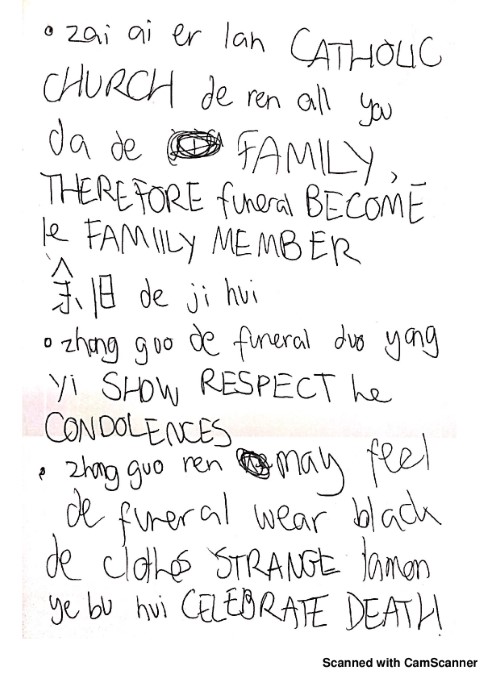 • zai ai er lan CATHOLIC
CHURCH de ren all you
da de FAMILY,
THEREFORE funeral BECOME
le FAMIILY MEMBER
余旧 de ji hui
• zhong guo de funeral duo yong
yi SHOW RESPECT he
CONDOLENCES
• zhong guo ren may feel
de funeral wear black
de clothes STRANGE tamen
ye bu hui CELEBRATE DEATH
Scanned with CamScanner